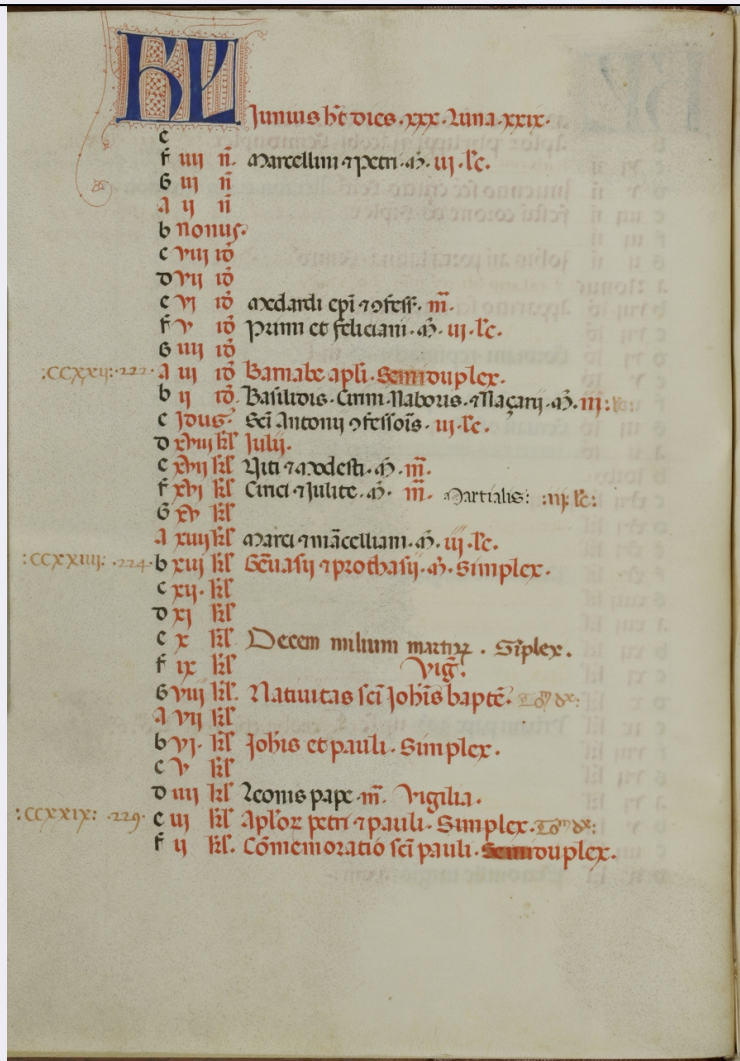 KL Junius ht dies .xxx. Luna .xxix.
e
f iiii n̄. Marcellini ⁊ Petri .m̄. iii .lc̄.
G iii n̄
A ii n̄
b nonus.
c viii id̄
D vii id̄
e vi id̄ Medardi ep̄i ⁊ ꝯfess̄. m̄.
f v id̄ Primi et feliciani .m̄. iii .lc̄.
G iiii id̄
:CCXXII: .222. A iii id̄ Barnabe apl̄i. Semiduplex.
b ii id̄. Basilidis. Cirini Naboris. ⁊ Naçarij .m̄. iii: lc̄:
c Idus. Sc̄i Antonij ꝯfessoīs. iij .lc̄.
D xviii kl̄ Julij.
e xvii kl̄ Viti ⁊ Modesti .m̄. m̄.
f xvi kl̄ Cirici ⁊ Julite .m̄. m̄. Martialis: :iij. lc̄:
G xv kl̄
A xiiii kl̄ Marci ⁊ mācelliani .m̄. iij .lc̄.
:CCXXIIII: .224. b xiii kl̄ Ḡvasij ⁊ prothasij .m̄. Simplex.
c xii. kl̄
D xi kl̄
e x kl̄ Decem milium martirꝝ. Sīplex.
f ix kl̄ Viḡ.
G viii kl̄. Nativitas sc̄i Joh̄is bapt̄e.
A vii kl̄
b vi. kl̄ Joh̄is et pauli. Simplex.
c v kl̄
D iiii kl̄ Leonis pape .m̄. Vigilia.
:CCXXIX: .229. e iii kl̄ Apl̄oꝝ petri ⁊ pauli. Simplex.
f ii kl̄. Cōmemoratio sc̄i pauli. Semiduplex.